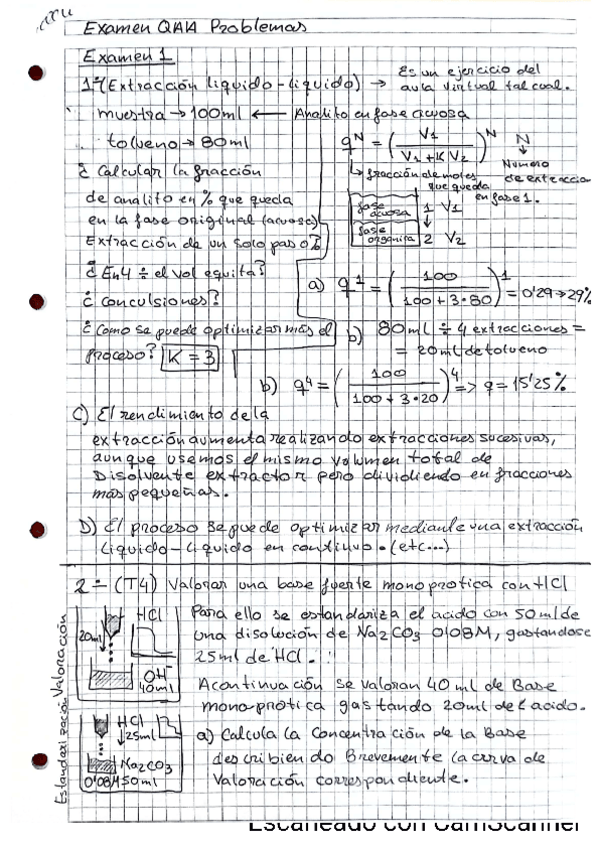 Examen QAIA Problemas
Examen 1
1º (Extracción liquido-liquido) → Es un ejercicio del aula virtual tal cual.
muestra → 100ml ← Analito en fase acuosa
tolueno → 80ml
¿ Calcular la fracción
de analito en % que queda
en la fase original (acuosa)
Extracción de un solo paso?
¿ En 4 ÷ el vol equita?
¿ conculsiones?
¿ Como se puede optimizar más el
proceso? K = 3
q^N = (V1 / (V1 + K V2))^N
N
↓
Numero
de extraccion
↳ fracción de moles
que queda
en fase 1.
fase acuosa 1 V1
↓
fase organica 2 V2
a) q^1 = (100 / (100 + 3·80))^1 = 0'29 → 29%
b) 80ml ÷ 4 extracciones =
= 20ml de tolueno
b) q^4 = (100 / (100 + 3·20))^4 => q = 15'25%
C) El rendimiento de la
extracción aumenta realizando extracciones sucesivas,
aunque usemos el mismo volumen total de
Disolvente extractor pero dividiendo en fracciones
más pequeñas.
D) El proceso se puede optimizar mediante una extracción
liquido-liquido en continuo. (etc...)
2 ÷ (T4) Valorar una base fuerte monoprotica con HCl
Valoración
20ml
HCl
OH-
40ml
Para ello se estandariza el acido con 50ml de
una disolución de Na2CO3 0'08M, gastandose
25ml de HCl.
A continuación se valoran 40 ml de Base
mono-protica gastando 20ml del acido.
Estandarización
HCl
↓25ml
Na2CO3
0'08M 50ml
a) Calcula la Concentración de la Base
describiendo Brevemente la curva de
Valoración correspondiente.
Escaneado con CamScanner